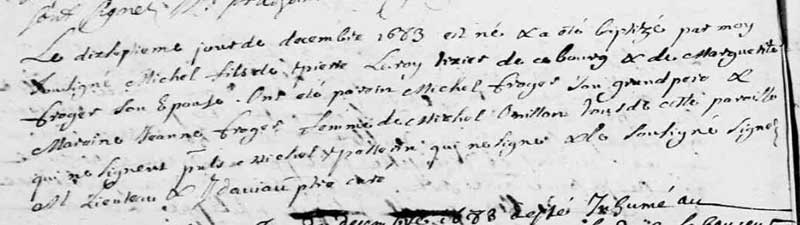 sont signez
Le dixseptieme jour de decembre 1683 est né & a été baptizé par moy
sousigné Michel fils de pierre Leroy tixier de ce bourg & de Marguerite
froger son Epouse. Ont été parain Michel froger son grand pere &
Maraine Jeanne froger femme de Michel tous de cette paroisse
qui ne signent Michel qui ne signe & le sousigné signez
M Lieuteau & J daviau ptre curé
decembre 1683 a été Inhumé au